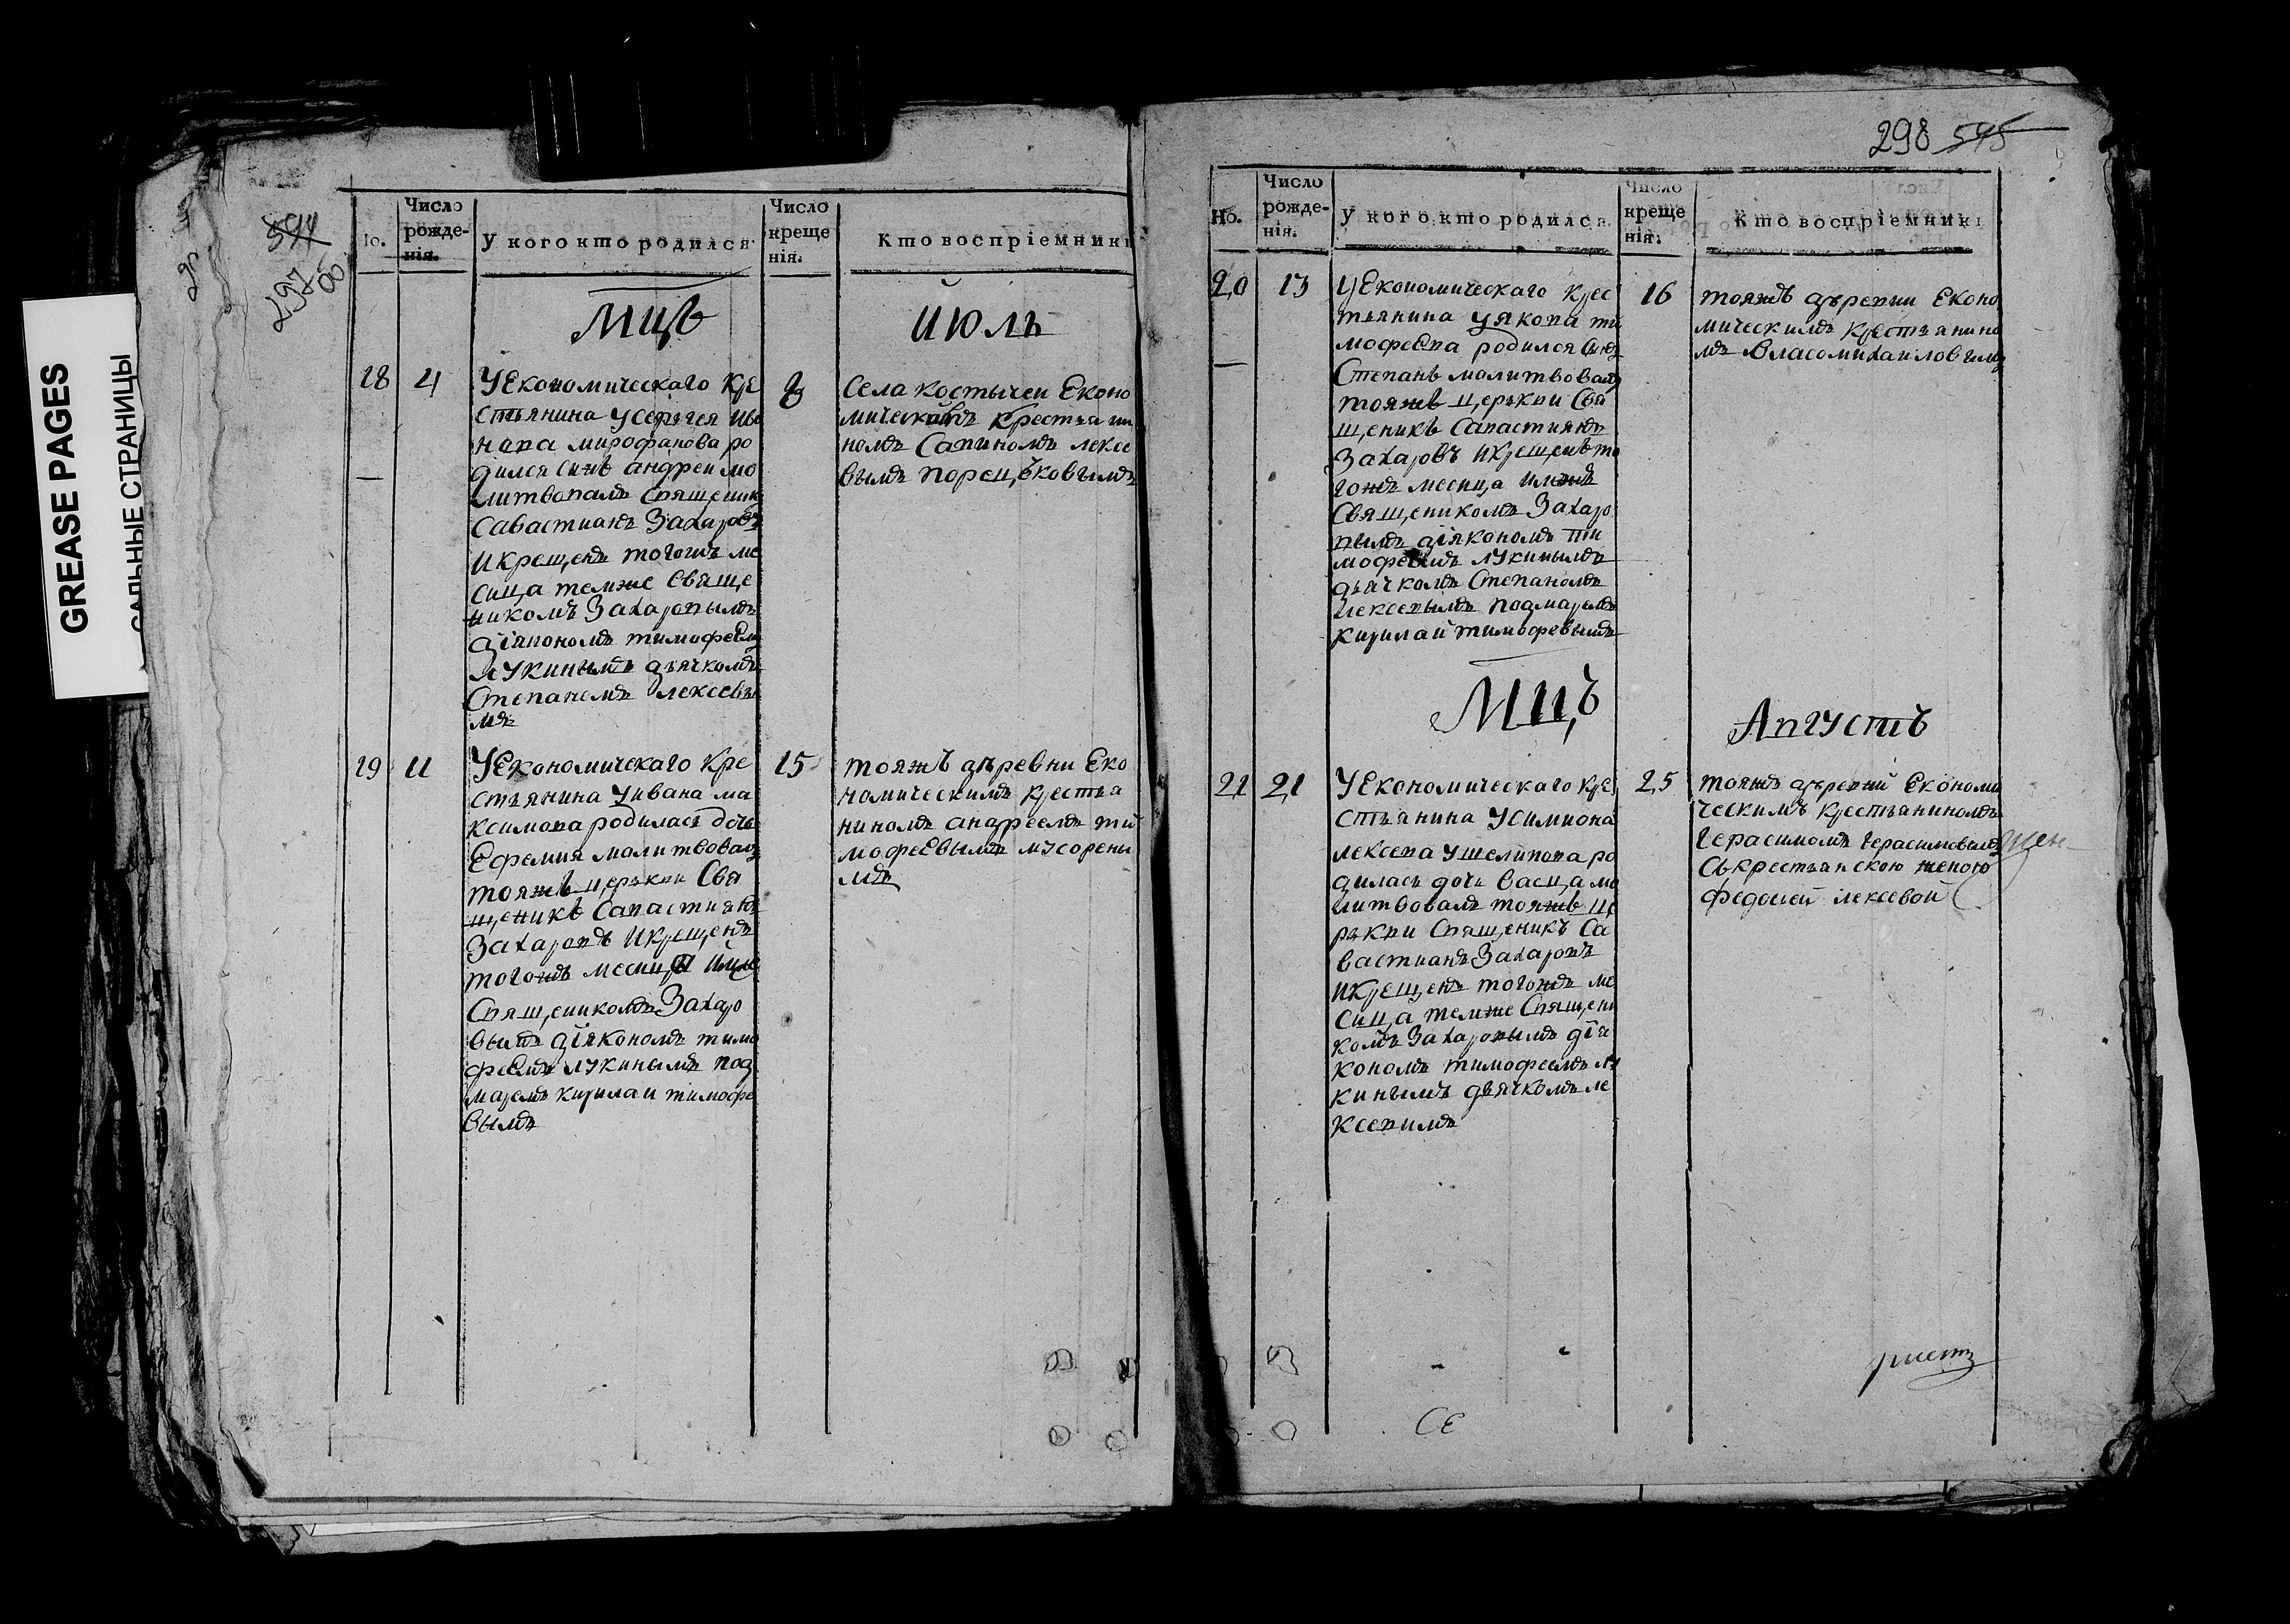 GREASE PAGES
САЛЬНЫЕ СТРАНИЦЫ
594
297
об
Но.
Число рожденія.
У кого кто родился.
Число крещенія.
Кто воспріемники
МЦЪ
ИЮЛЬ
18
4
УЕкономическаго Кре
стьянина усергея ива
нова мирофанова ро
дился синъ андреи мо
литвовалъ Священикъ
Савастианъ Захаровъ
икрещенъ тогожъ ме
сица темже Свяще
никомъ Захаровымъ
діякономъ тимофеемъ
лукинымъ дьячкомъ
Степанемъ лексевы
мъ
8
Села костычеи Еконо
мическимъ крестьяни
номъ Савиномъ лексе
вымъ порецъковымъ
19
11
УЕкономическаго Кре
стьянина уивана ма
ксимова родилась дочь
Ефемия молитвовалъ
тояжъ церькви Свя
щеникъ Савастиянъ
Захаровъ Икрещенъ
тогожъ месица имже
Священикомъ Захаро
вымъ діякономъ тимо
феемъ лукинымъ под
маремъ кирилаи тимофе
вымъ
15
тояжъ дъревни Еко
номическимъ крестья
ниномъ андреемъ ти
мофеЕвымъ мусорены
мъ
298 595
Но.
Число рожденія.
У кого кто родился.
Число крещенія.
Кто воспріемники
20
13
УЕкономическаго крес
тьянина уякова ти
мофеЕва родился синъ
Степанъ молитвовалъ
тояжъ церькви Свя
щеникъ Савастиянъ
Захаровъ икрещенъ то
гожъ месица имже
Священикомъ Захаро
вымъ діякономъ ти
мофеемъ лукинымъ
дьячкомъ Степаномъ
лексевымъ подмаремъ
кирилаи тимофевымъ
16
тояжъ дъревни Еконо
мическимъ крестьянино
мъ власомихаиловымъ
МЦЪ
Августъ
21
21
УЕкономическаго кре
стьянина усимиона
лексева ушелипова ро
дилась дочь васца мо
литвовалъ тояжъ це
рькви Священикъ Са
вастианъ Захаровъ
икрещенъ тогожъ ме
сица темже Священи
комъ Захаровымъ дія
кономъ тимофеемъ лу
кинымъ дьячкомъ ле
ксевимъ
25
тояжъ дъревни Економи
ческимъ крестьяниномъ
герасимомъ герасимовымъ
Съкрестьянскою женою
федосеи лексевой
СЕ